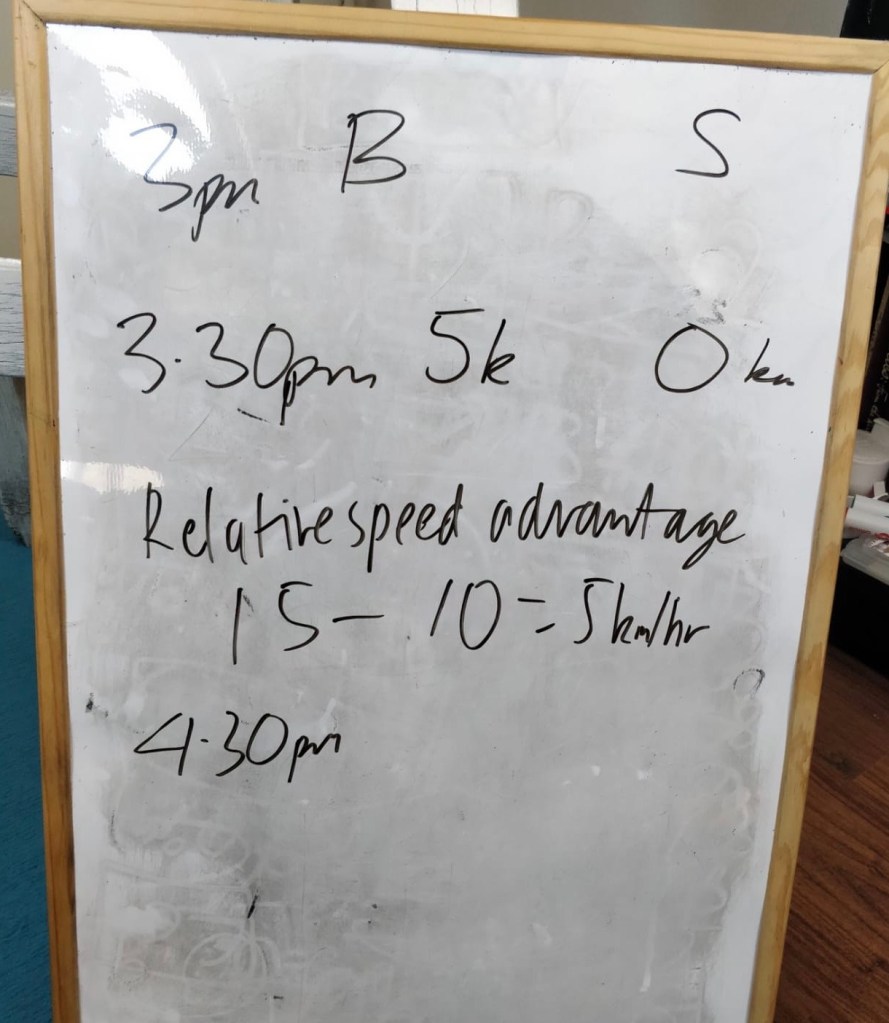 3pm B S
3.30pm 5k 0km
Relative speed advantage
15 - 10 = 5km/hr
4.30pm